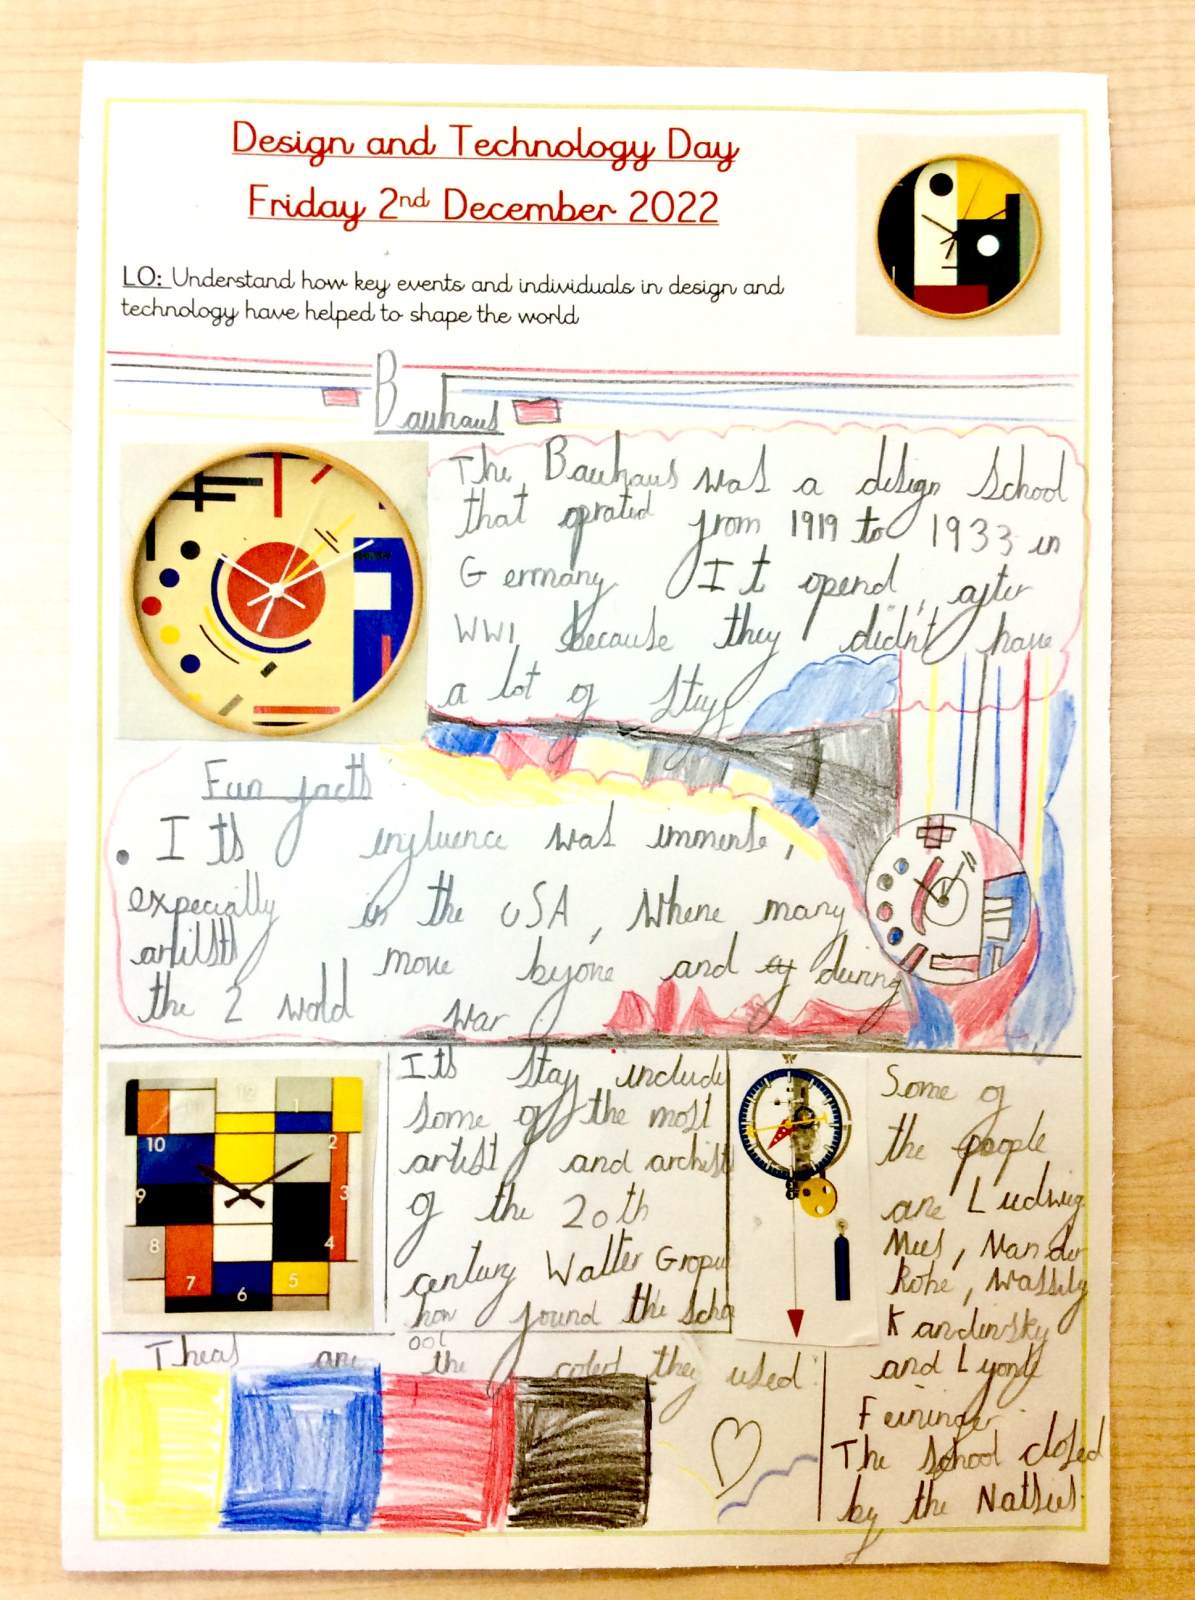 Design and Technology Day
Friday 2nd December 2022
LO: Understand how key events and individuals in design and
technology have helped to shape the world
Bauhaus
The Bauhaus was a design school
that oprated from 1919 to 1933 in
Germany It opend, after
WW1, because they didn't have
a lot of
Fun facts
• Its influence was immense,
expecially in the USA, where many
artists move byone and during
the 2 wold war
Its stay include
some of the most
artist and archist
of the 20th
century Walter Gropu
how found the scho
ool
Some of
the people
are Ludwig
Mies, Van der
Rohe, Wassily
Kandinsky
and Lyonle
Feininger
The school closed
by the Natsies.
Theas are the colers they used:
12
1
2
3
4
5
6
7
8
9
10